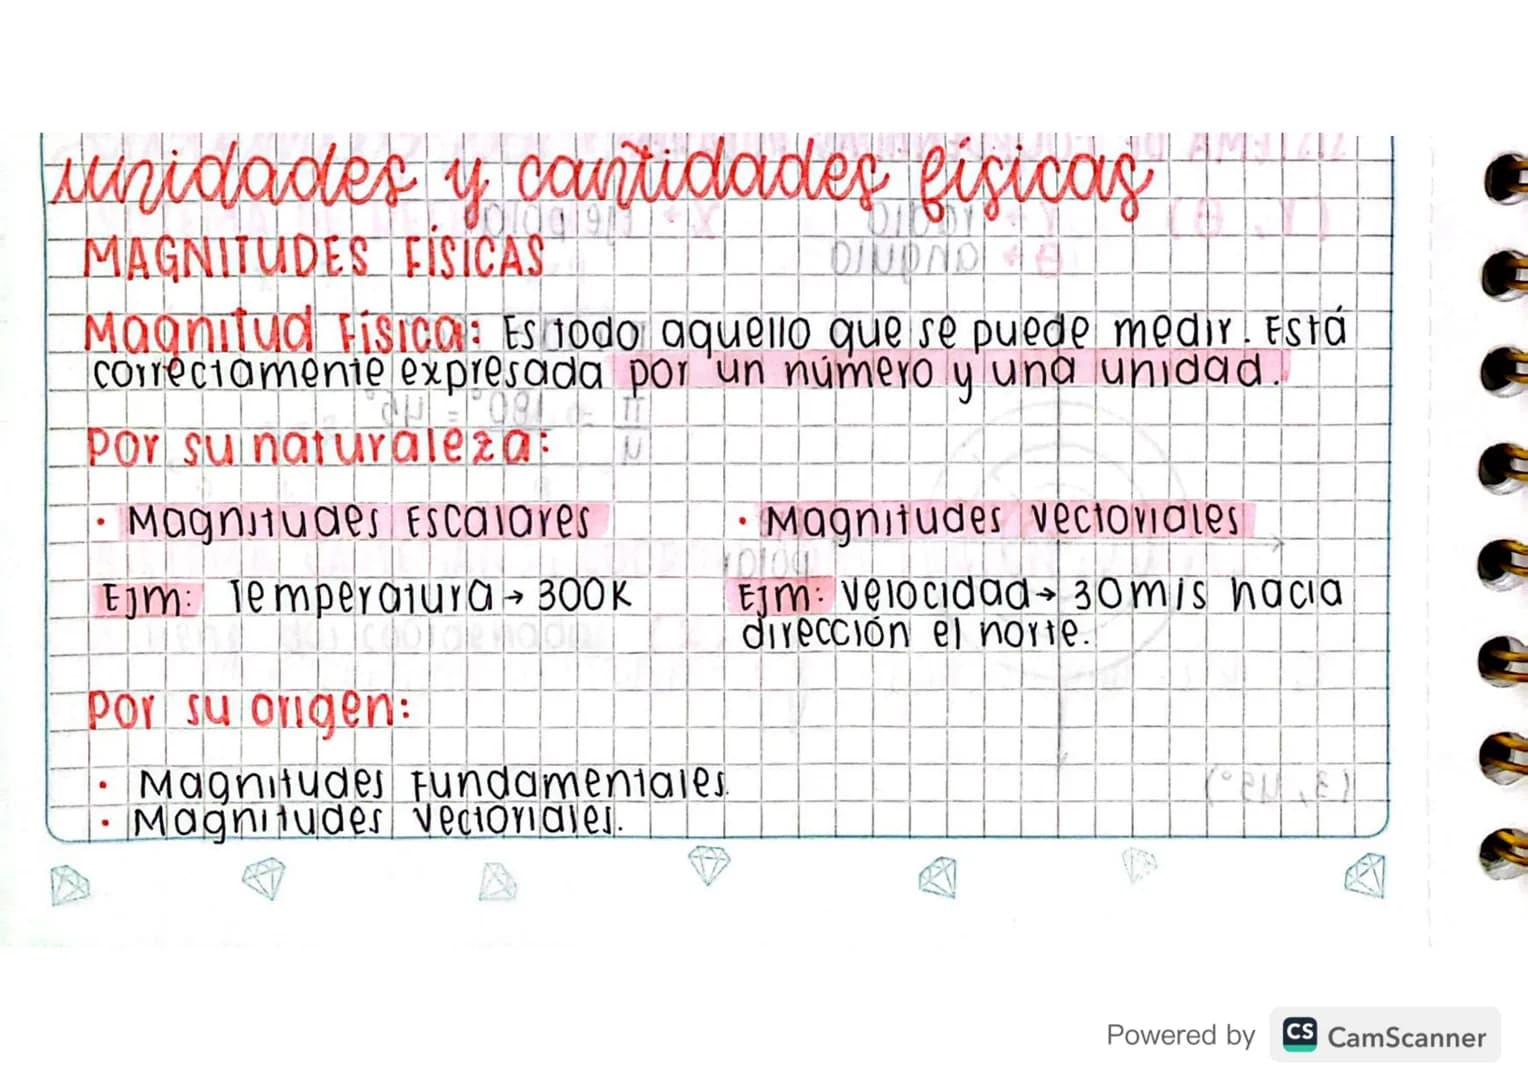 unidades y cantidades físicas
MAGNITUDES FÍSICAS
Magnitud Física: Es todo aquello que se puede medir. Está
correctamente expresada por un número y una unidad.
Por su naturaleza:
· Magnitudes Escalares
· Magnitudes Vectoriales
Ejm: Temperatura → 300K
Ejm: Velocidad → 30m/s hacia
dirección el norte.
Por su origen:
· Magnitudes Fundamentales.
· Magnitudes Vectoriales.
Powered by CS CamScanner